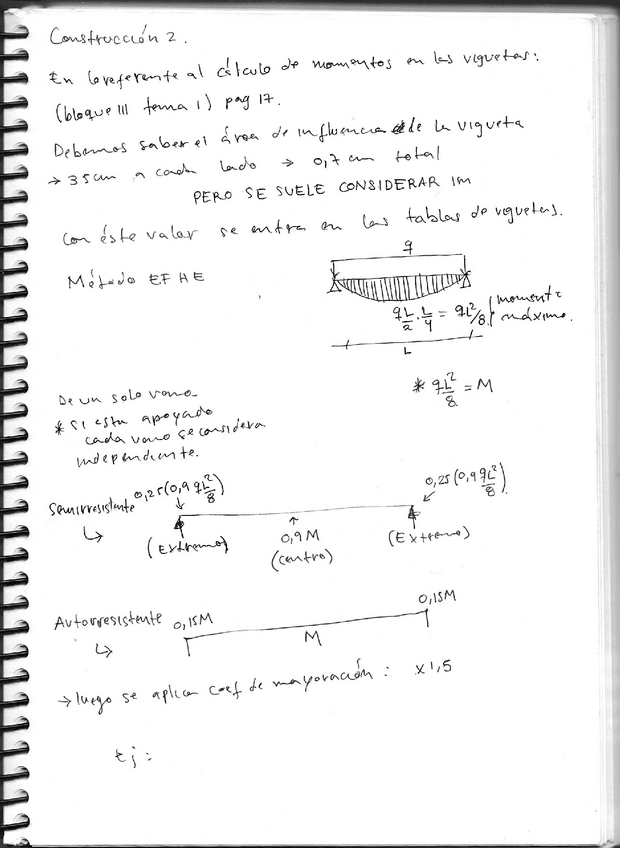 Construcción 2.
En lo referente al cálculo de momentos en las viguetas:
(bloque III tema 1) pag 17.
Debemos saber el área de influencia de la vigueta
→ 35cm a cada lado → 0,7 cm total
PERO SE SUELE CONSIDERAR 1m
con éste valor se entra en las tablas de viguetas.
Método EFHE
q
qL/2 · L/4 = qL²/8 momento
máximo.
L
De un solo vano.
* qL²/8 = M
* Si esta apoyado
cada vano se considera
independiente.
Semirresistente 0,25(0,9 qL²/8)
0,25(0,9 qL²/8)
(Extremo)
0,9M
(centro)
(Extremo)
Autorresistente 0,15M
0,15M
M
→ luego se aplica coef de mayoración: x1,5
ej: